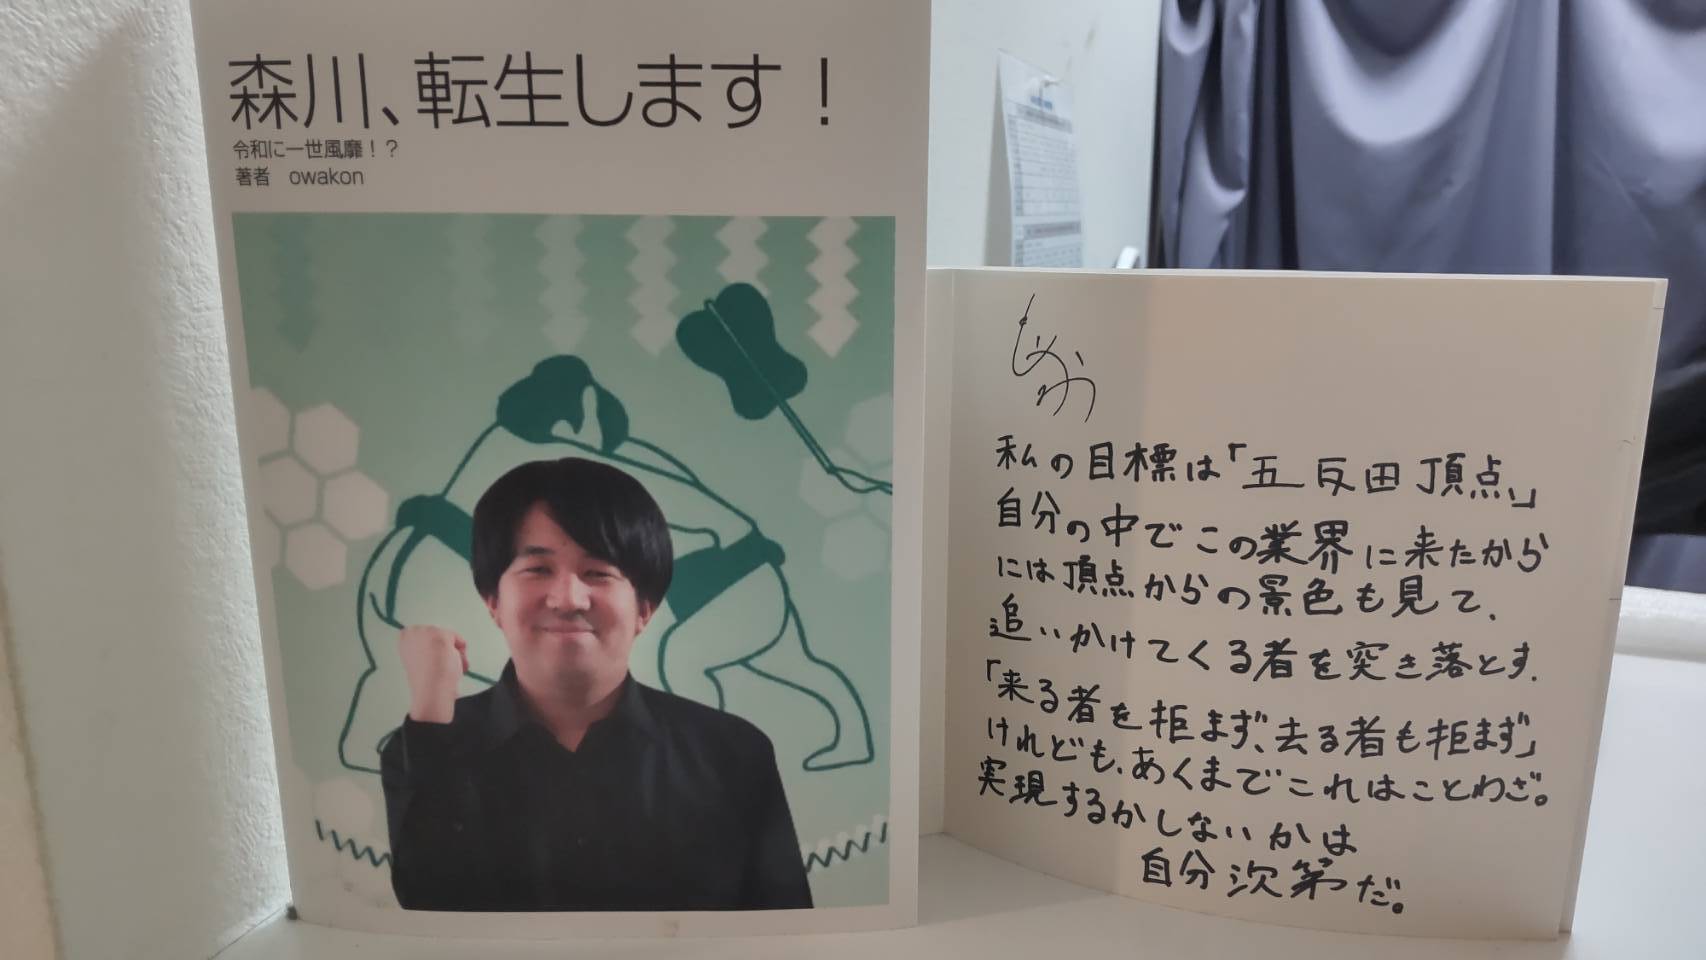 森川、転生します！
令和に一世風靡！？
著者　owakon
私の目標は「五反田頂点」
自分の中でこの業界に来たから
には頂点からの景色も見て、
追いかけてくる者を突き落とす。
「来る者を拒まず、去る者も拒まず」
けれども、あくまでこれはことわざ。
実現するかしないかは
自分次第だ。